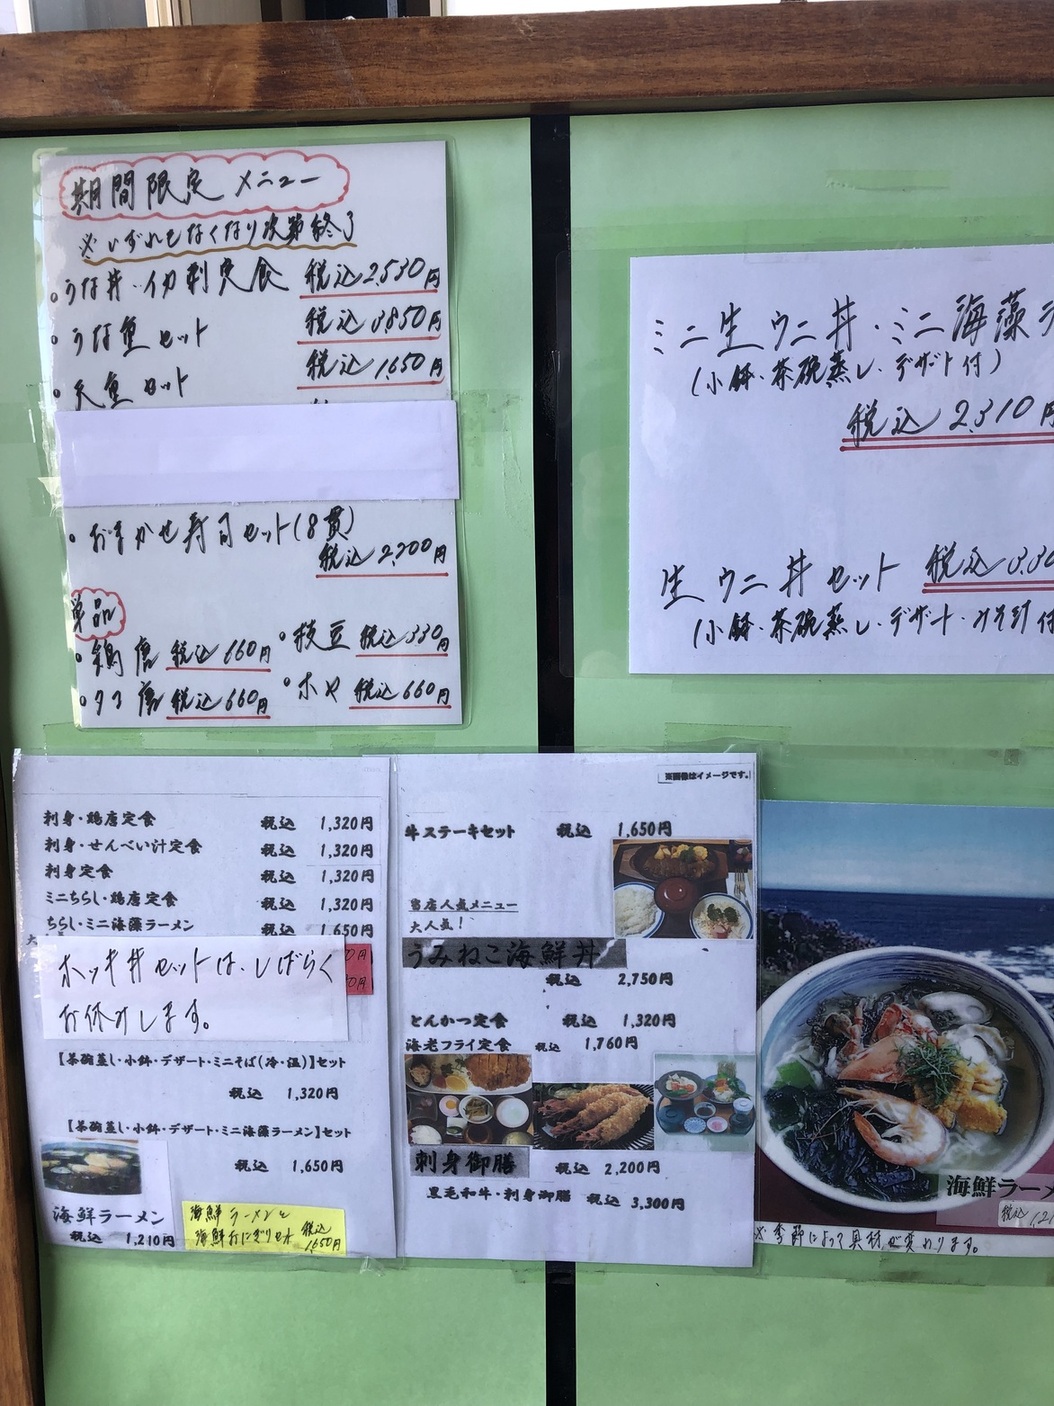 期間限定 メニュー
※いずれもなくなり次第終了
・うな丼・イカ刺定食 税込2,530円
・うな重セット 税込3850円
・天重セット 税込1,650円
・おまかせ寿司セット(8貫)
税込2,200円
単品
・鶏唐 税込660円
・枝豆 税込330円
・タコ唐 税込660円
・ホヤ 税込660円
ミニ生ウニ丼・ミニ海藻ラ
(小鉢・茶碗蒸し・デザート付)
税込2,310円
生ウニ丼セット 税込3,30
(小鉢・茶碗蒸し・デザート・みそ汁付
刺身・鶏唐定食 税込 1,320円
刺身・せんべい汁定食 税込 1,320円
刺身定食 税込 1,320円
ミニちらし・鶏唐定食 税込 1,320円
ちらし・ミニ海藻ラーメン 税込 1,650円
大
ホッキ丼セットは、しばらく
お休みします。
【茶碗蒸し・小鉢・デザート・ミニそば(冷・温)】セット
税込 1,320円
【茶碗蒸し・小鉢・デザート・ミニ海藻ラーメン】セット
税込 1,650円
海鮮ラーメン
税込 1,210円
海鮮ラーメンと
海鮮おにぎりセット 税込1,650円
※画像はイメージです。
牛ステーキセット 税込 1,650円
当店人気メニュー
大人気!
うみねこ海鮮丼
税込 2,750円
とんかつ定食 税込 1,320円
海老フライ定食 税込 1,760円
刺身御膳 税込 2,200円
黒毛和牛・刺身御膳 税込 3,300円
海鮮ラーメ
税込 1,21
※季節によって具材が変わります。